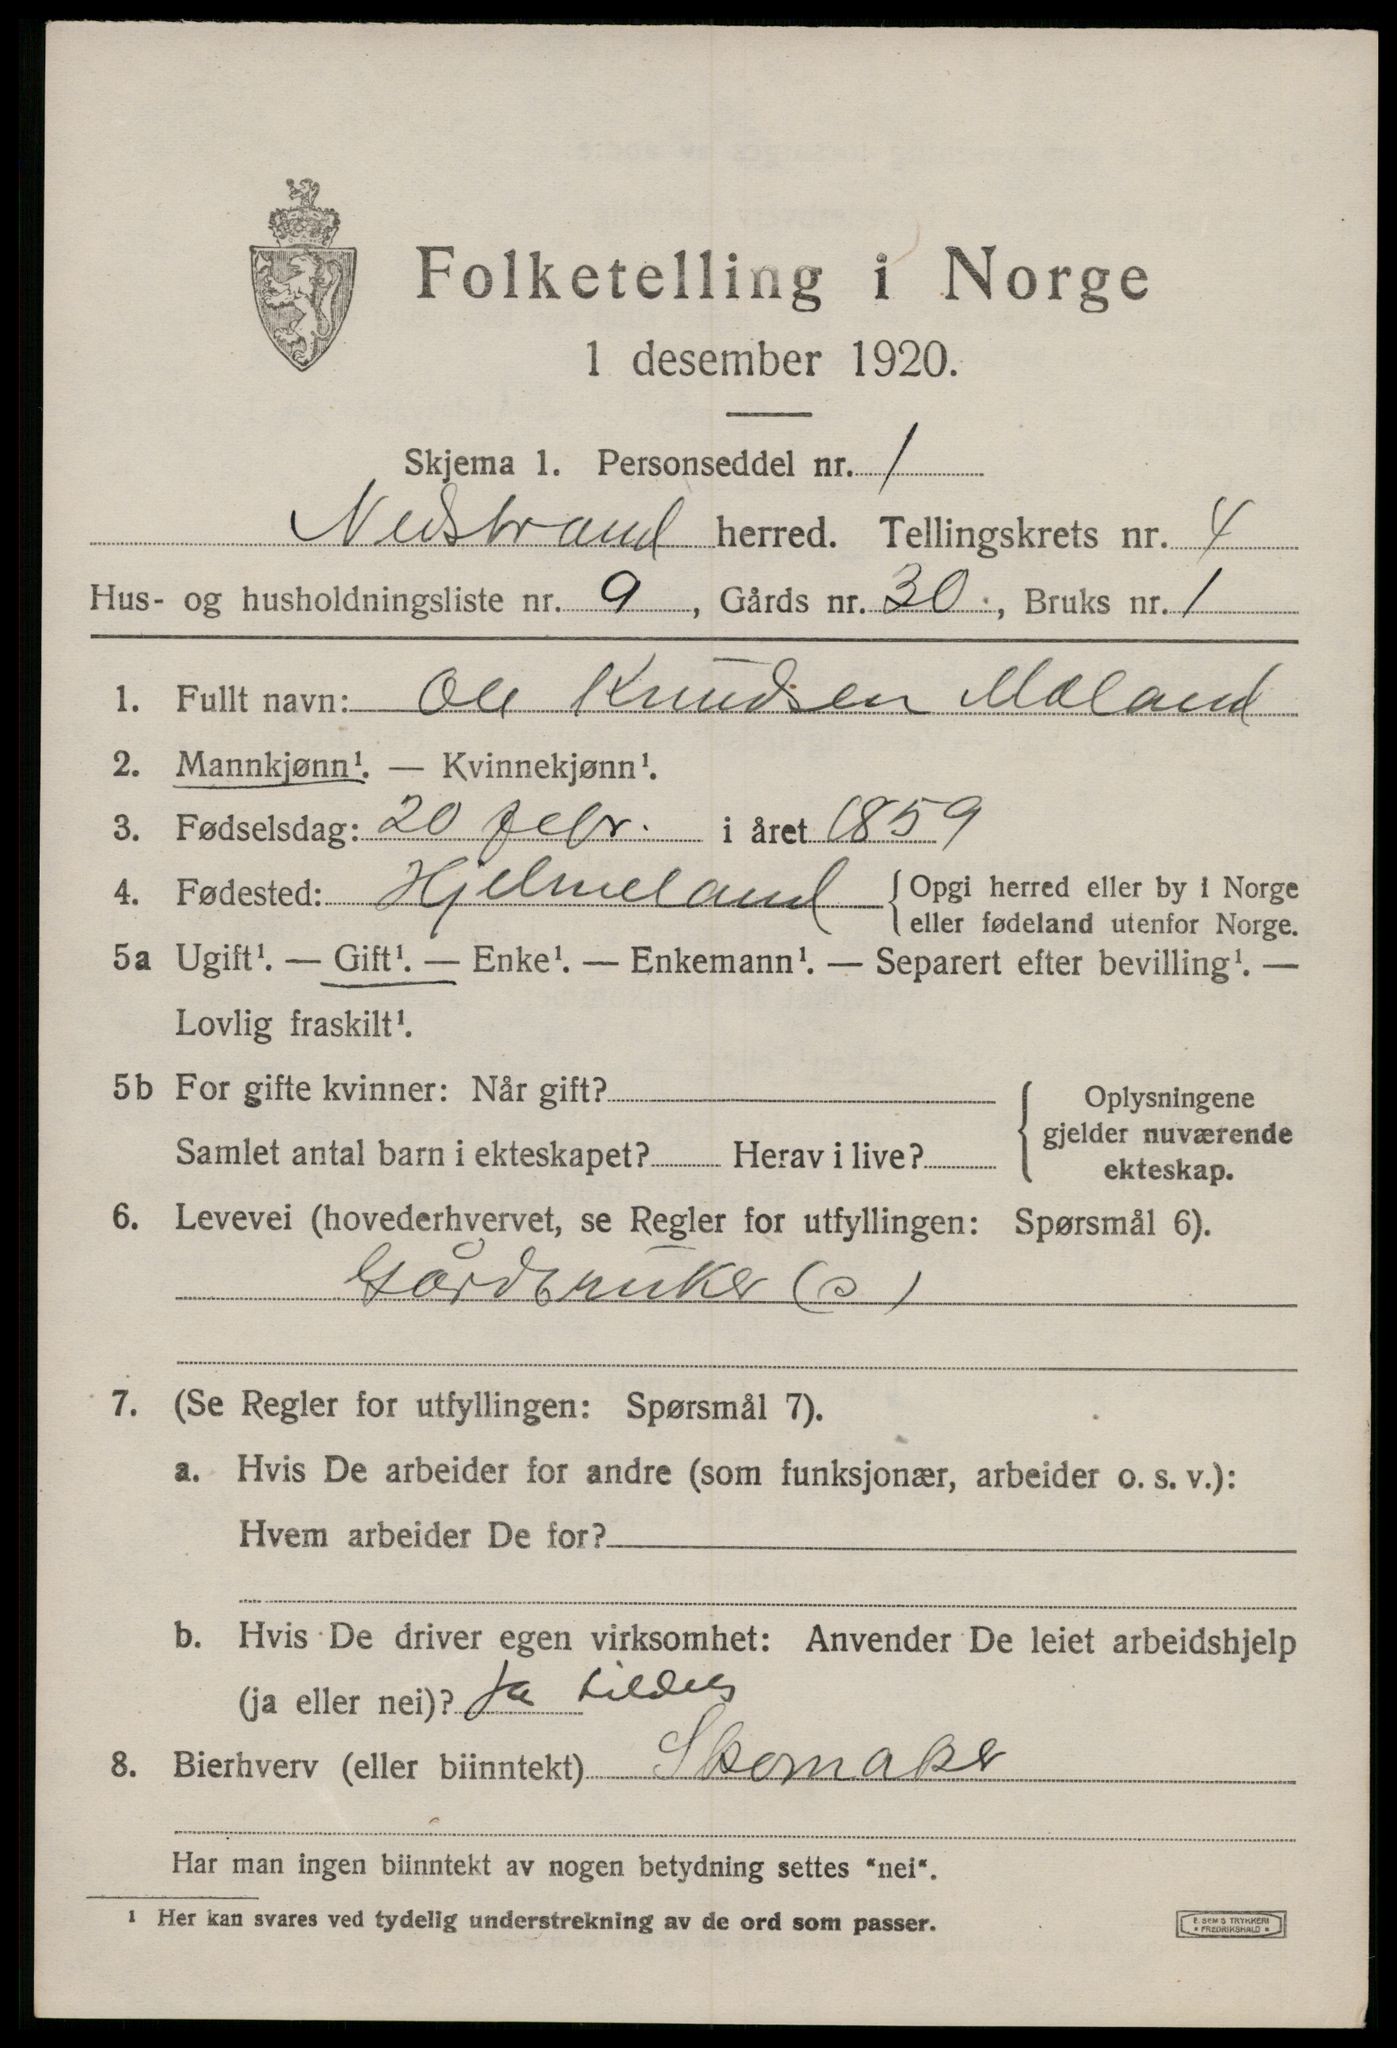 Folketelling i Norge
1 desember 1920.
Skjema 1. Personseddel nr. 1
Nedstrand herred. Tellingskrets nr. 4
Hus- og husholdningsliste nr. 9, Gårds nr. 30., Bruks nr. 1
1. Fullt navn: Ole Knudsen Mæland
2. Mannkjønn¹. — Kvinnekjønn¹.
3. Fødselsdag: 20 febr. i året 1859
4. Fødested: Hjelmeland {Opgi herred eller by i Norge
eller fødeland utenfor Norge.
5a Ugift¹. — Gift¹. — Enke¹. — Enkemann¹. — Separert efter bevilling¹. —
Lovlig fraskilt¹.
5b For gifte kvinner: Når gift? Oplysningene
gjelder nuværende
Samlet antal barn i ekteskapet? Herav i live?
ekteskap.
6. Levevei (hovederhvervet, se Regler for utfyllingen: Spørsmål 6).
Gårdbruker (s)
7. (Se Regler for utfyllingen: Spørsmål 7).
a. Hvis De arbeider for andre (som funksjonær, arbeider o. s. v.):
Hvem arbeider De for?
b. Hvis De driver egen virksomhet: Anvender De leiet arbeidshjelp
(ja eller nei)? Ja tildels
8. Bierhverv (eller biinntekt) Skomaker
Har man ingen biinntekt av nogen betydning settes "nei".
¹ Her kan svares ved tydelig understrekning av de ord som passer.
E. SEM S TRYKKERI
* FREDRIKSHALD *